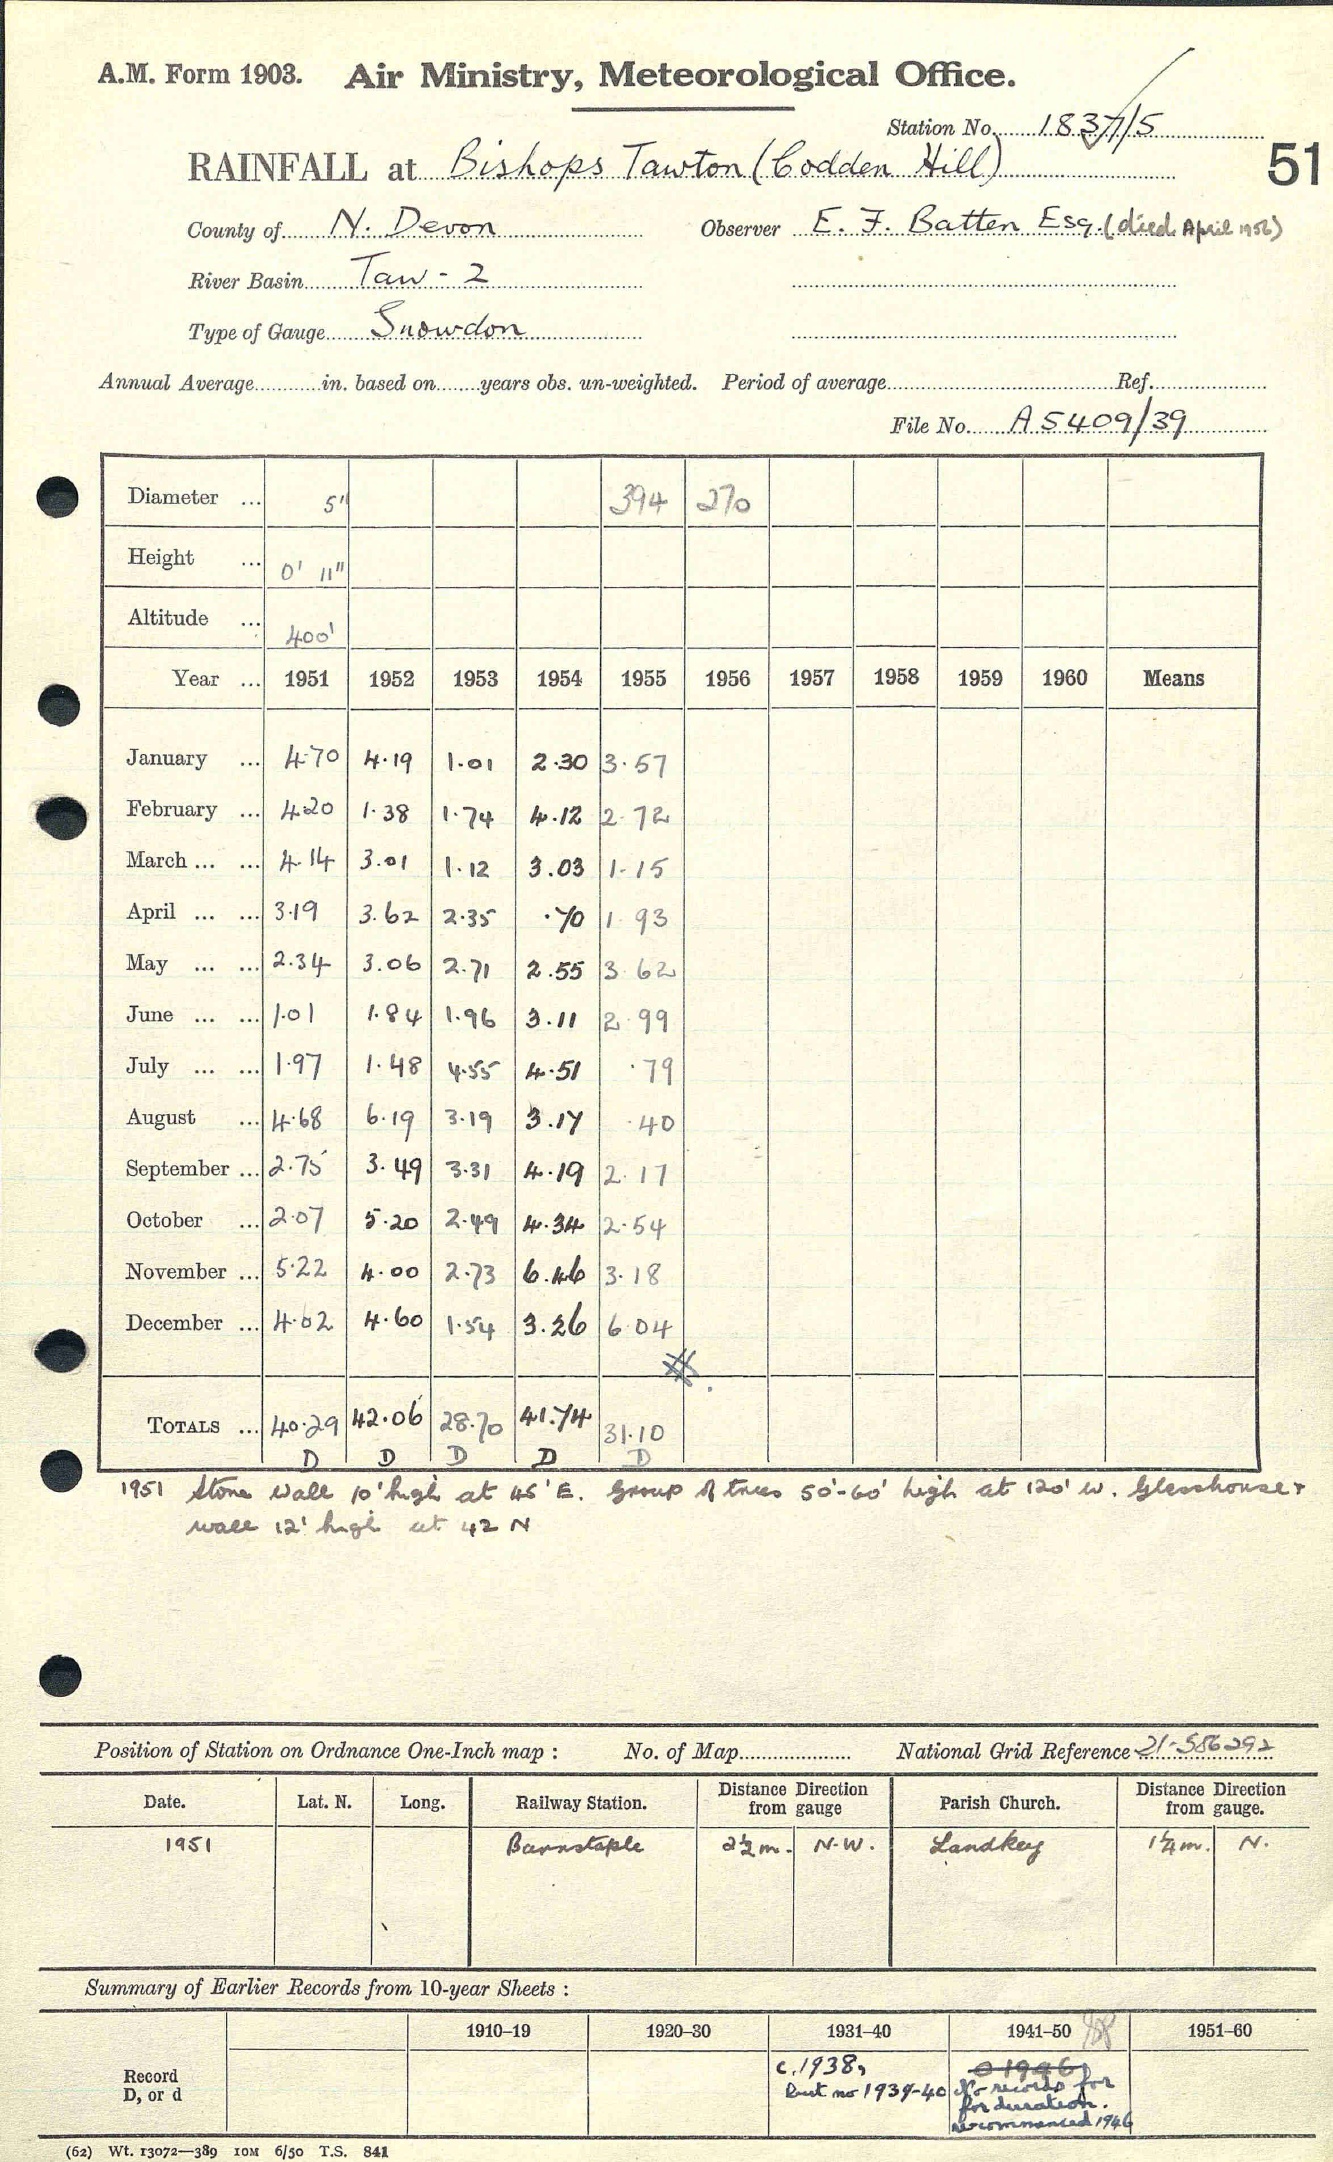 A.M. Form 1903. Air Ministry, Meteorological Office.
Station No. 1837/5
51
RAINFALL at Bishops Tawton (Codden Hill)
County of N. Devon Observer E. F. Batten Esq. (died April 1956)
River Basin Taw - 2
Type of Gauge Snowdon
Annual Average in. based on years obs. un-weighted. Period of average Ref.
File No. A5409/39
Diameter ... 5" 394 270
Height ... 0' 11"
Altitude ... 400'
Year ... 1951 1952 1953 1954 1955 1956 1957 1958 1959 1960 Means
January ... 4.70 4.19 1.01 2.30 3.57
February ... 4.20 1.38 1.74 4.12 2.72
March ... ... 4.14 3.01 1.12 3.03 1.15
April ... ... 3.19 3.62 2.35 .70 1.93
May ... ... 2.34 3.06 2.71 2.55 3.62
June ... ... 1.01 1.84 1.96 3.11 2.99
July ... ... 1.97 1.48 4.55 4.51 .79
August ... 4.68 6.19 3.19 3.17 .40
September ... 2.75 3.49 3.31 4.19 2.17
October ... 2.07 5.20 2.49 4.34 2.54
November ... 5.22 4.00 2.73 6.46 3.18
December ... 4.02 4.60 1.54 3.26 6.04
Totals ... 40.29 42.06 28.70 41.74 31.10
D D D D D
1951 Stone wall 10' high at 45' E. Group of trees 50'-60' high at 120' W. Glasshouse +
wall 12' high at 42 N
Position of Station on Ordnance One-Inch map : No. of Map National Grid Reference 21-586292
Date. Lat. N. Long. Railway Station. Distance from gauge Direction Parish Church. Distance from gauge. Direction
1951 Barnstaple 2½ m. N.W. Landkey 1¼ m. N.
Summary of Earlier Records from 10-year Sheets :
1910–19 1920–30 1931–40 1941–50 1951–60
Record D, or d
c.1938,
but no 1939-40
1946
No records for
for duration.
recommenced 1946
(62) Wt. 13072—389 10M 6/50 T.S. 841